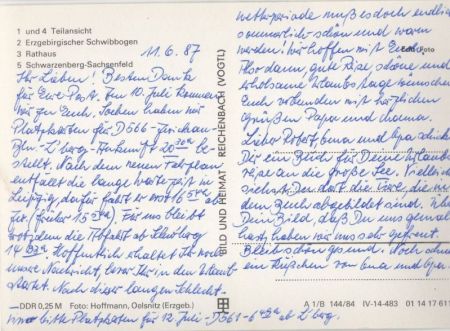 1 und 4 Teilansicht
2 Erzgebirgischer Schwibbogen
3 Rathaus
5 Schwarzenberg-Sachsenfeld
11.6.87
Ihr Lieben! Besten Dank
für Eure Post. Am 10. Juli kommen
wir zu Euch. Soeben haben wir
Platzkarten für D 666 - Zwickau-
Bln.- L'berg - Ankunft 20 30a be-
stellt. Nach dem neuen Fahrplan
entfällt die lange Wartezeit in
Leipzig, dafür fährt er erst 16 ab
Zw. früher 15 Für uns bleibt
trotzdem die Abfahrt ab
14 Hoffentlich erhaltet Ihr noch
unsere Nachricht, bevor Ihr in den Urlaub
startet. Nach dieser langen Schlecht-
DDR 0,25 M Foto: Hoffmann, Oelsnitz (Erzgeb.)
bitte Platzkarten für 12. Juli - D 661 - 6 ab L'berg.
BILD UND HEIMAT REICHENBACH (VOGTL)
wetterperiode muß es doch endlich
sommerlich schön und warm
werden! Wir hoffen mit Euch.
Echt Foto
Also dann, gute Reise, schöne und
erholsame Urlaubstage wünschen
Euch verbunden mit herzlichen
Grüßen Papa und Mama.
Lieber Robert, Oma und Opa
Dir ein Buch für Deine Urlaubs
reise an die große See. Vielleicht
siehst Du dort die Tiere, die in
dem Buch abgebildet sind.
Dein Bild, daß Du uns gemalt
hast, haben wir uns sehr gefreut.
Bleib schön gesund. Noch
ein Küßchen von Oma und Opa
A 1/B 144/84 IV-14-483 01 14 17 61